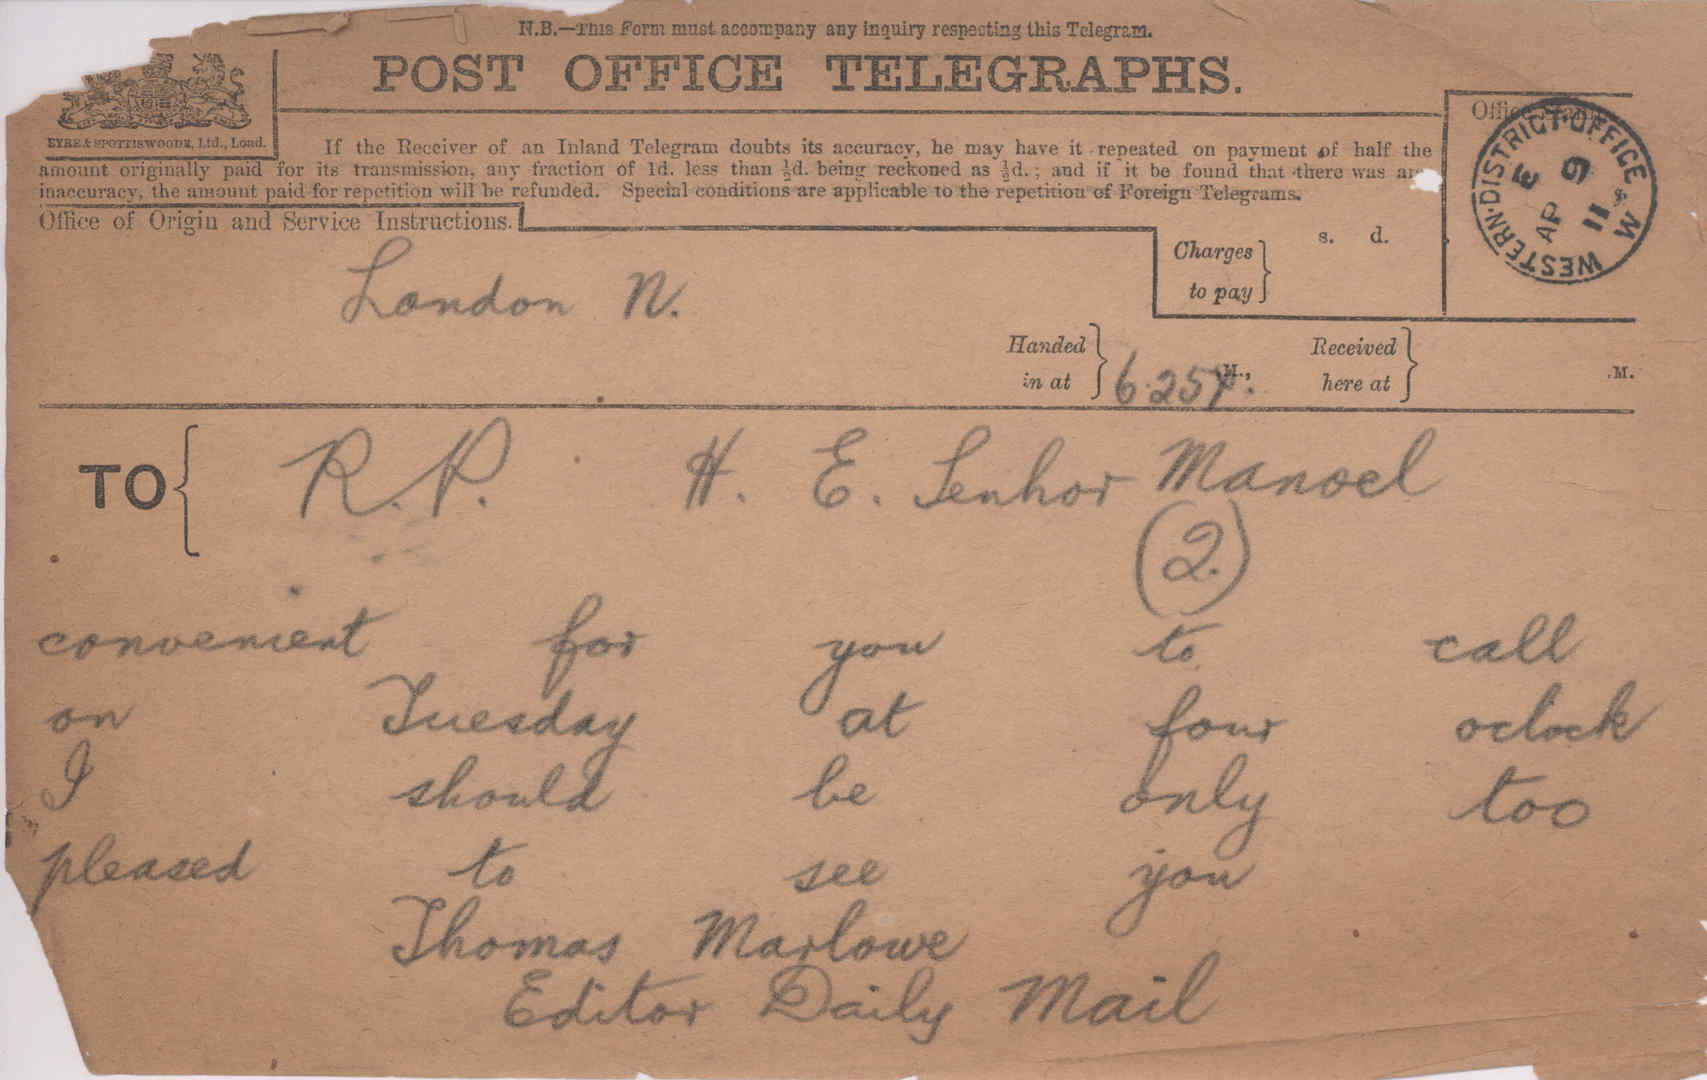 N.B.—This Form must accompany any inquiry respecting this Telegram.
POST OFFICE TELEGRAPHS.
EYRE & SPOTTISWOODE, Ltd., Lond.
If the Receiver of an Inland Telegram doubts its accuracy, he may have it repeated on payment of half the
amount originally paid for its transmission, any fraction of 1d. less than ½d. being reckoned as ½d.; and if it be found that there was any
inaccuracy, the amount paid for repetition will be refunded. Special conditions are applicable to the repetition of Foreign Telegrams.
Office Stamp
WESTERN·DISTRICT·OFFICE W
E
9 AP
11
Office of Origin and Service Instructions.
Charges to pay
s. d.
London N.
Handed in at
6.25 P. M.,
Received here at
M.
TO R.P. H. E. Senhor Manoel
(2.)
convenient for you to call
on Tuesday at four oclock
I should be only too
pleased to see you
Thomas Marlowe
Editor Daily Mail